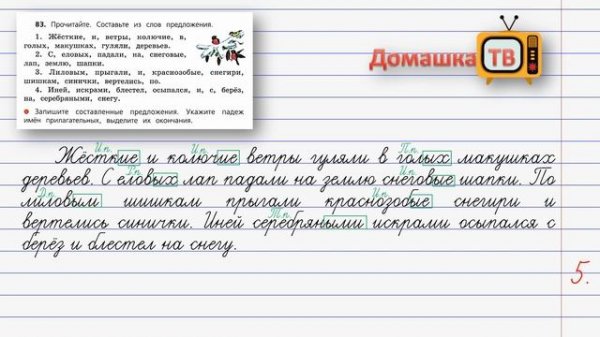 83. Прочитайте. Составьте из слов предложения.
1. Жёсткие, и, ветры, колючие, в,
голых, макушках, гуляли, деревьев.
2. С, еловых, падали, на, снеговые,
лап, землю, шапки.
3. Лиловым, прыгали, и, краснозобые, снегири,
шишкам, синички, вертелись, по.
4. Иней, искрами, блестел, осыпался, и, с, берёз,
на, серебряными, снегу.
● Запишите составленные предложения. Укажите падеж
имён прилагательных, выделите их окончания.
Домашка ТВ
И.п. И.п. П.п.
Жёсткие и колючие ветры гуляли в голых макушках
Р.п. И.п.
деревьев. С еловых лап падали на землю снеговые шапки. По
Д.п. И.п.
лиловым шишкам прыгали краснозобые снегири и
Т.п.
вертелись синички. Иней серебряными искрами осыпался с
берёз и блестел на снегу.
5.